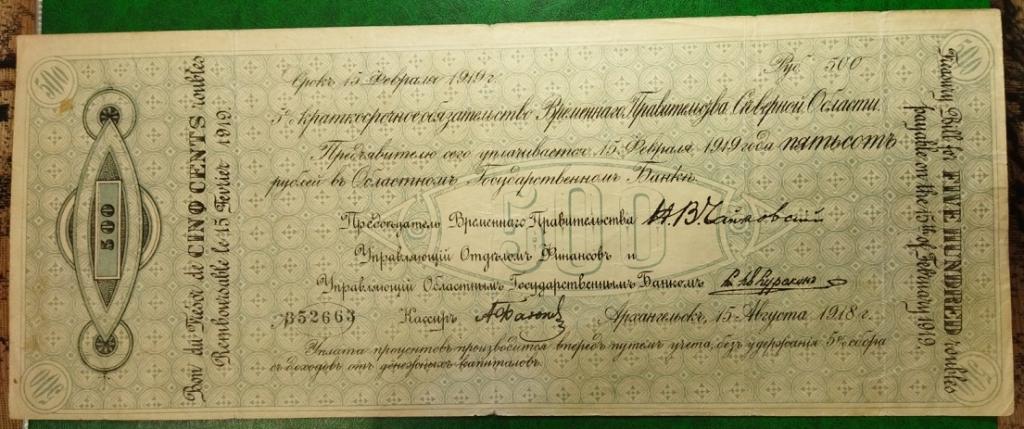 500
500
Срокъ 15 Февраля 1919г.
Руб. 500
5% краткосрочное обязательство Временнаго Правительства Сѣверной Области.
Предъявителю сего уплачивается 15 Февраля 1919 года пятьсотъ
рублей въ Областномъ Государственномъ Банкѣ.
500
Предсѣдатель Временнаго Правительства Н.В.Чайковскій
Управляющій Отдѣломъ Финансовъ и
Управляющій Областнымъ Государственнымъ Банкомъ
№352663
Кассиръ
Архангельскъ, 15 Августа 1918 г.
Уплата процентовъ производится впередъ путемъ учета, безъ удержанія 5% сбора
съ доходовъ отъ денежныхъ капиталовъ.
500
Bon du Trésor de CINQ CENTS roubles
Remboursable le 15 Février 1919.
Treasury Bill for FIVE HUNDRED roubles
payable on the 15th of February 1919
500
500
500